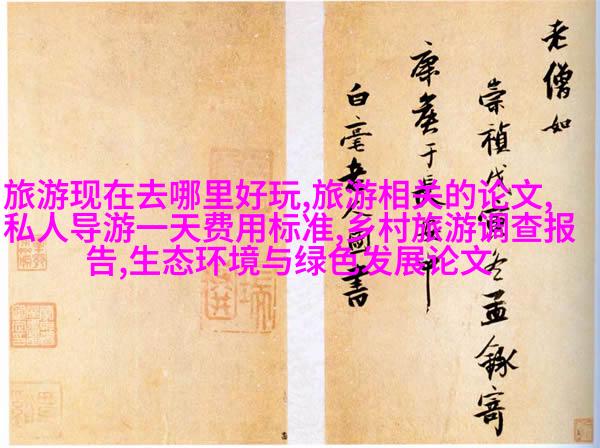 旅游现在去哪里好玩,旅游相关的论文,
私人导游一天费用标准,乡村旅游调查报
告,生态环境与绿色发展论文
老僧如
崇禎戊寅冬孟錄寄
康侯于長中
白毫老人書